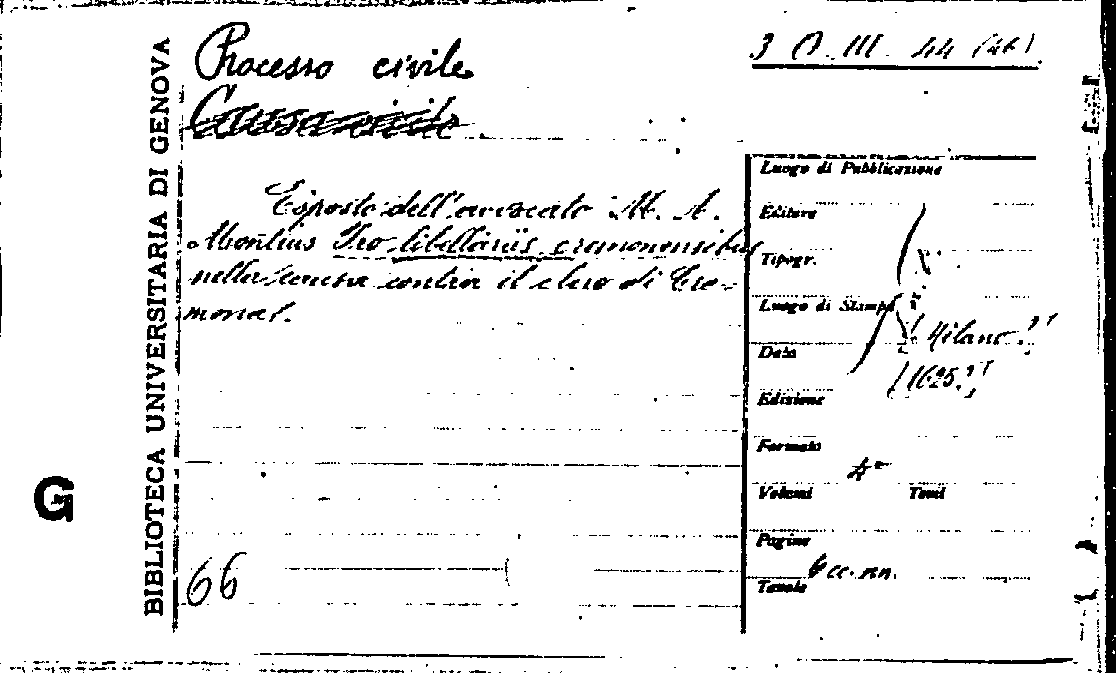 Processo civile
3 O. III. 44 (46)
Causa civile
Esposto dell'avvocato M. A.
Montius Pro libellariis cremonensibus
nella causa contro il clero di Cre-
mona.
BIBLIOTECA UNIVERSITARIA DI GENOVA
G
66
Luogo di Pubblicazione
Editore
Tipogr.
Luogo di Stampa
[Milano?]
Data
[1625?]
Edizione
Formato
4°
Volumi Tomi
Pagine
6 cc. nn.
Tavole